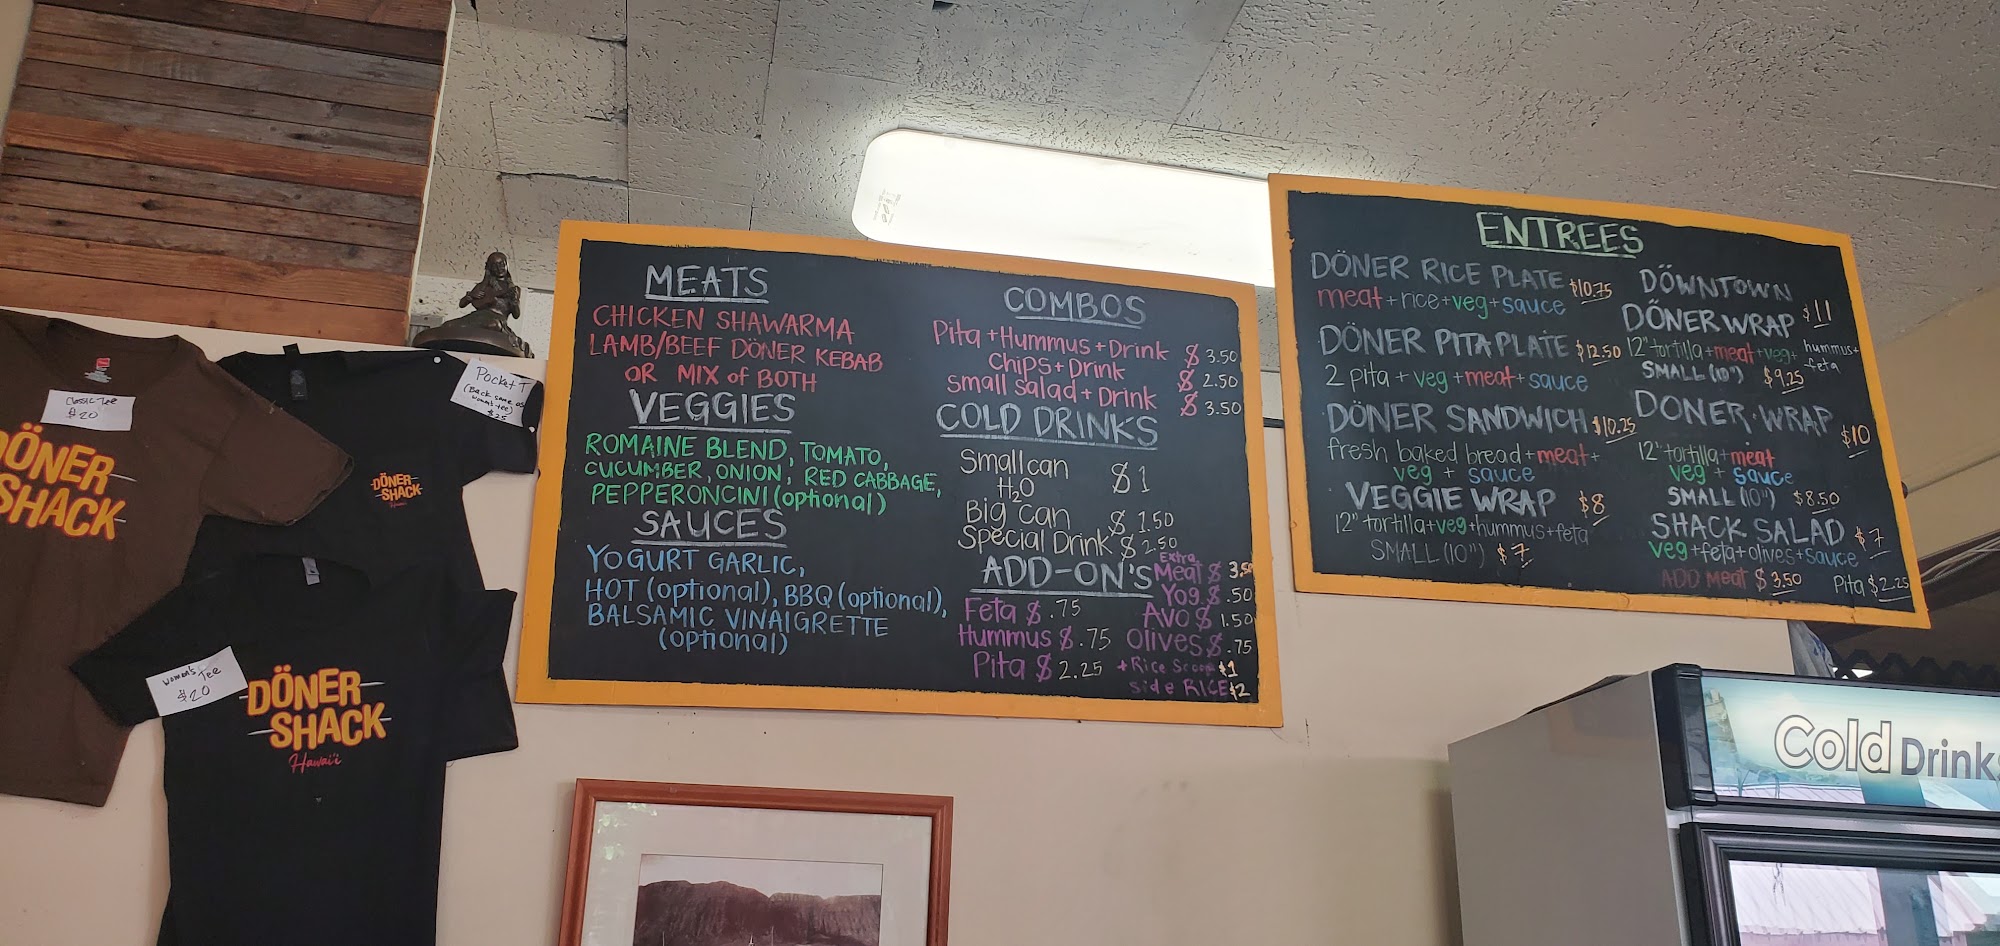 Classic Tee
$20
DÖNER
SHACK
Pocket T
(Back same as
women's tee)
$25
DÖNER
SHACK
Hawai'i
Women's Tee
$20
DÖNER
SHACK
Hawai'i
MEATS
CHICKEN SHAWARMA
LAMB/BEEF DÖNER KEBAB
OR MIX of BOTH
VEGGIES
ROMAINE BLEND, TOMATO,
CUCUMBER, ONION, RED CABBAGE,
PEPPERONCINI (optional)
SAUCES
YOGURT GARLIC,
HOT (optional), BBQ (optional),
BALSAMIC VINAIGRETTE
(optional)
COMBOS
Pita + Hummus + Drink $ 3.50
Chips + Drink $ 2.50
Small Salad + Drink $ 3.50
COLD DRINKS
Small can $1
H2O
Big Can $ 1.50
Special Drink $ 2.50
ADD-ON'S
Feta $ .75
Hummus $ .75
Pita $ 2.25
Extra
Meat $ 3.50
Yog. $ .50
Avo $ 1.50
Olives $ .75
+ Rice Scoop $1
Side RICE $2
ENTREES
DÖNER RICE PLATE $10.75
meat + rice + veg + sauce
DÖNER PITA PLATE $12.50
2 pita + veg + meat + sauce
DÖNER SANDWICH $10.25
fresh baked bread + meat +
veg + sauce
VEGGIE WRAP $8
12" tortilla + veg + hummus + feta
SMALL (10") $7
DÖWNTOWN
DÖNER WRAP $11
12" tortilla + meat + veg + hummus +
feta
SMALL (10") $9.25
DONER WRAP $10
12" tortilla + meat
veg + sauce
SMALL (10") $8.50
SHACK SALAD $7
veg + feta + olives + sauce
ADD Meat $3.50 Pita $2.25
Cold Drinks